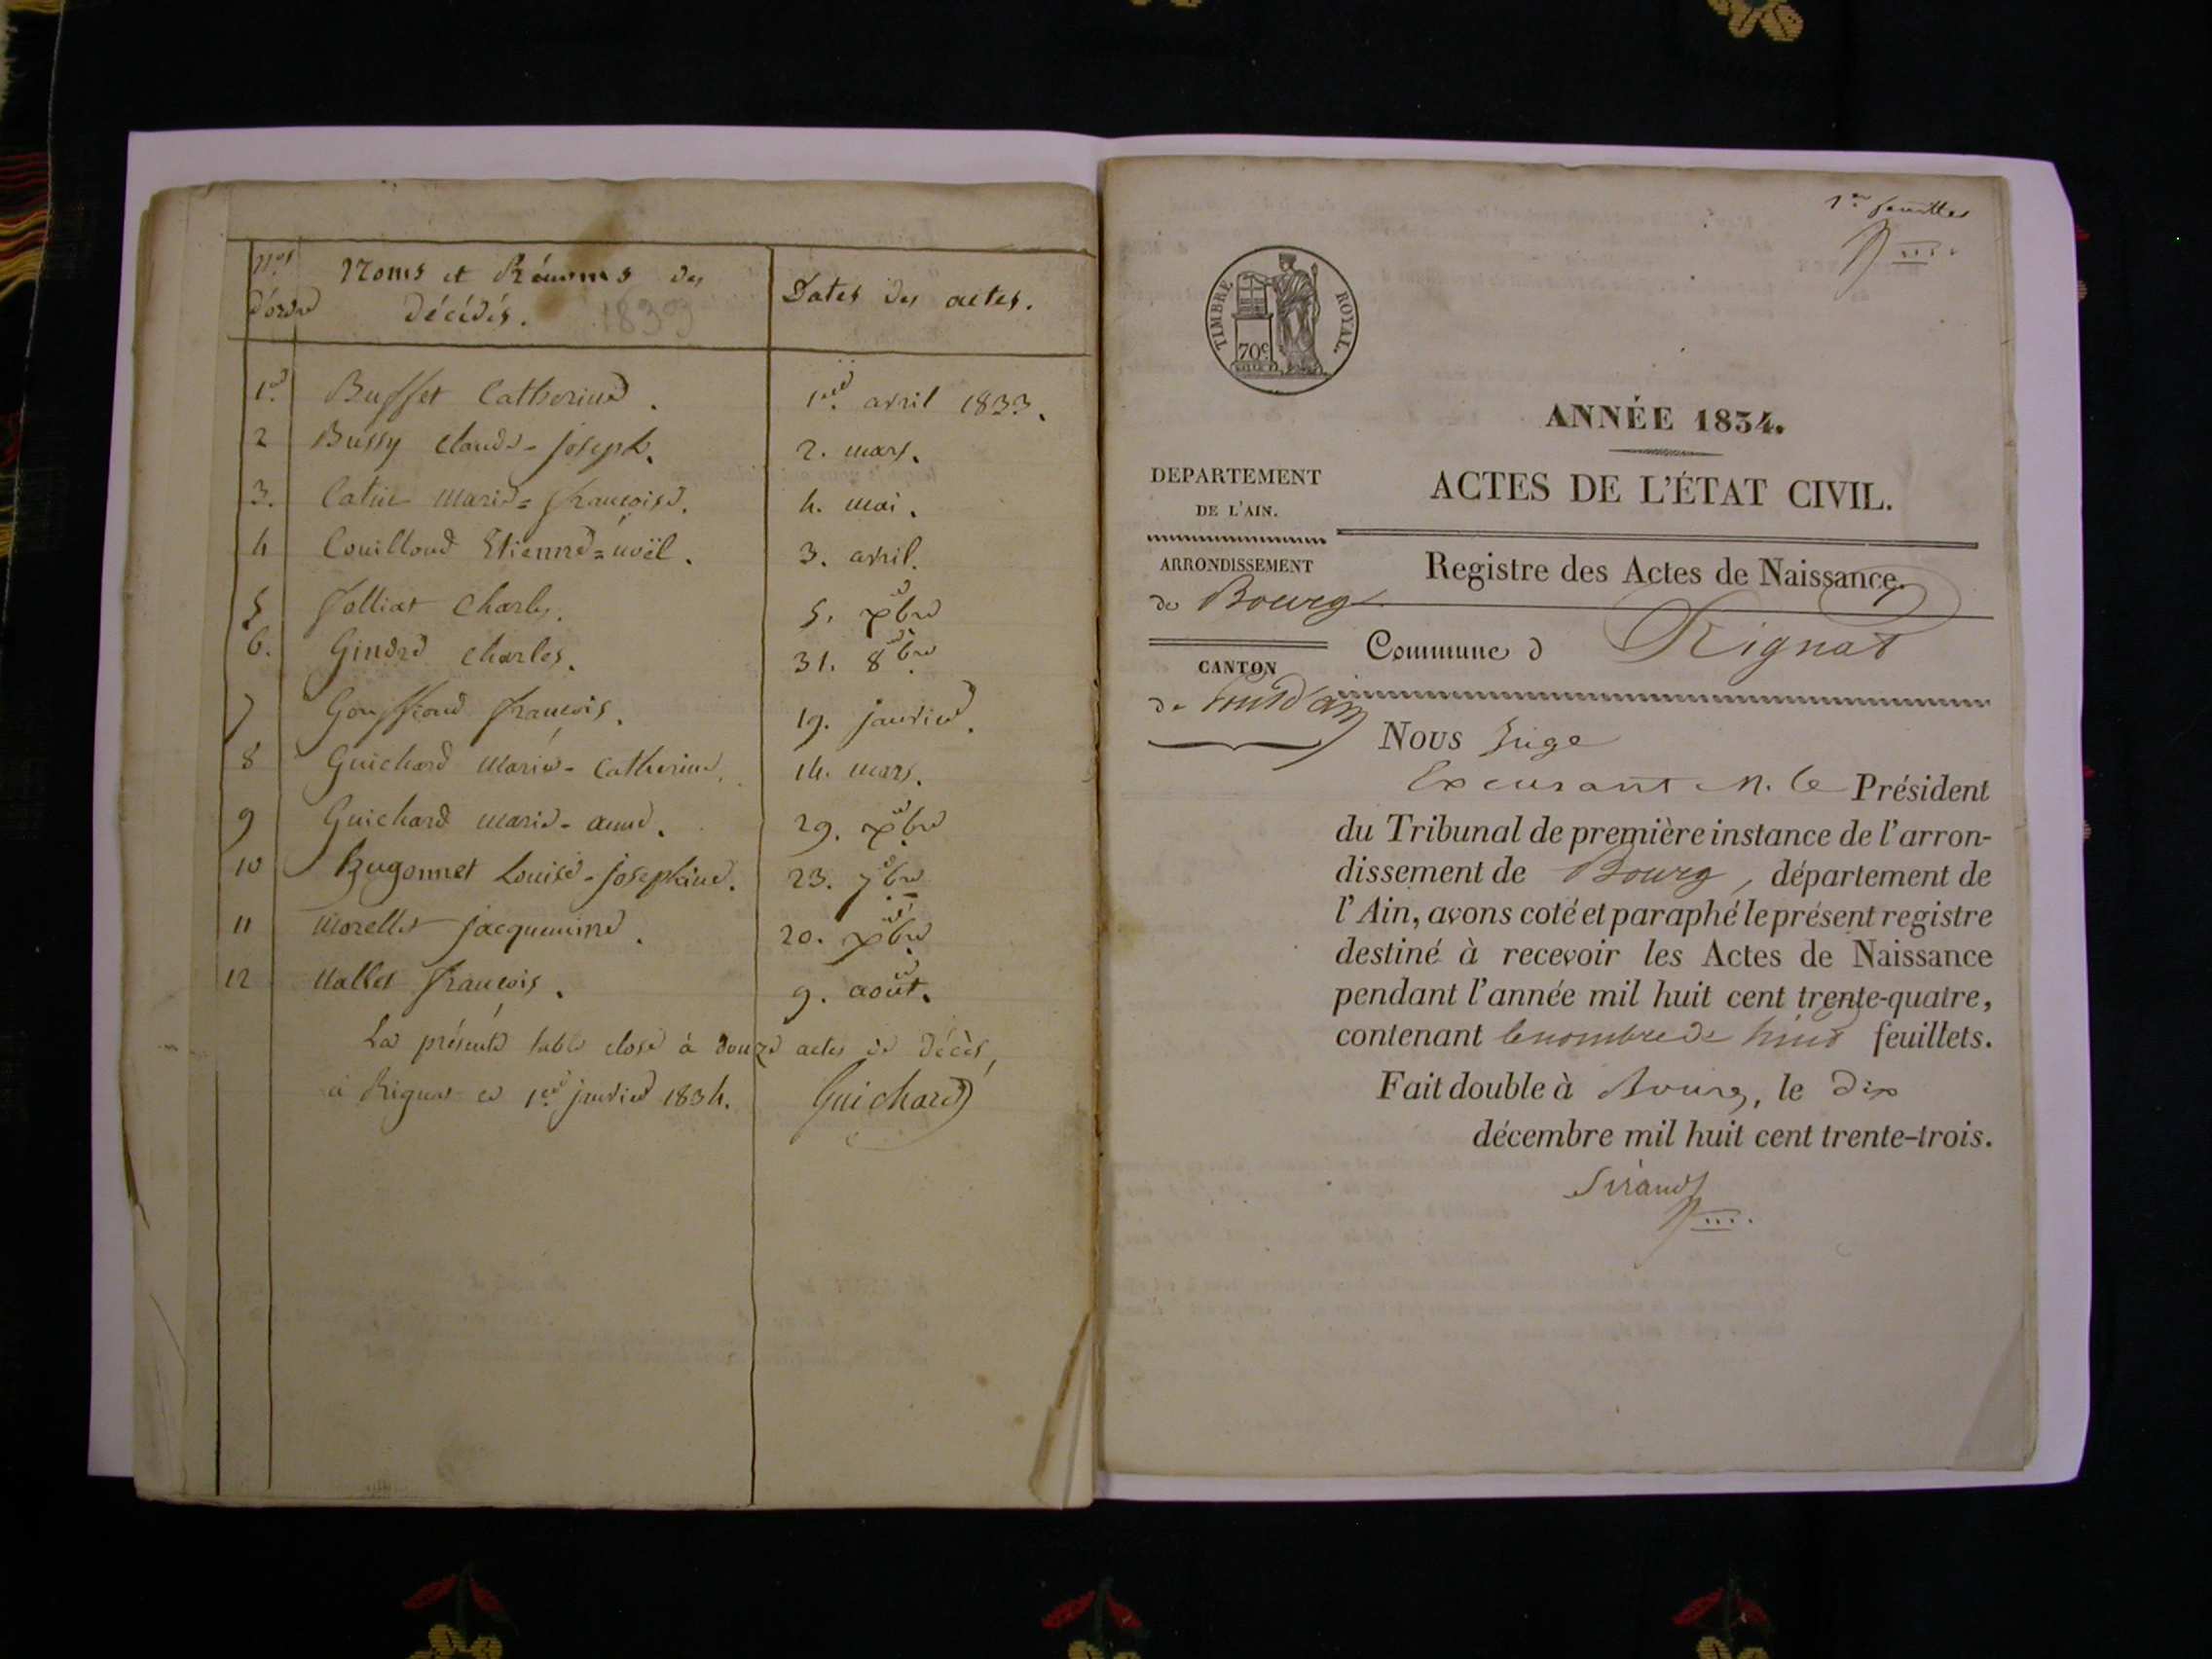 Nos d'ordre
Noms et Prénoms des décédés.
Dates des actes.
1er Buffet Catherine. 1er avril 1833.
2 Bussy Claude-Joseph. 2. mars.
3. Catin Marie=françoise. 4. mai.
4 Couilloud Etienne=noël. 3. avril.
5 Folliat Charles. 5. xbre
6. Gindre Charles. 31. 8bre
7 Gouffroud françois. 19. janvier.
8 Guichard Marie-Catherine. 14. mars.
9 Guichard Marie-anne. 29. xbre
10 Hugonnet Louise-Josephine. 23. 7bre
11 Morellet Jacquemine. 20. xbre
12 Nallet françois. 9. août.
La présente table close à douze actes de décès,
à Rignat ce 1er janvier 1834. Guichard
1er feuillet
TIMBRE ROYAL.
70c
ANNÉE 1834.
DEPARTEMENT
DE L'AIN.
ACTES DE L'ÉTAT CIVIL.
ARRONDISSEMENT
de Bourg
Registre des Actes de Naissance.
CANTON
de Pont d'ain
Commune d Rignat
Nous Juge
Excusant M. le Président
du Tribunal de première instance de l'arron-
dissement de Bourg, département de
l'Ain, avons coté et paraphé le présent registre
destiné à recevoir les Actes de Naissance
pendant l'année mil huit cent trente-quatre,
contenant le nombre de huit feuillets.
Fait double à Bourg, le dix
décembre mil huit cent trente-trois.
Sirand